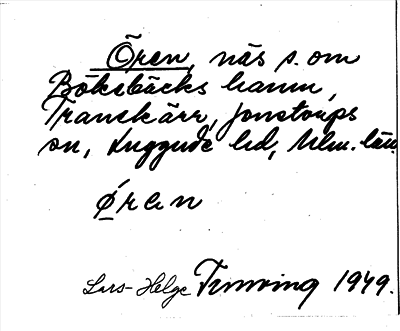 Ören, näs s. om
Bökebäcks hamn,
Tranekärr, Jonstorps
sn, Luggude hd, Mlm. län
Øren
Lars-Helge Tunving 1949.